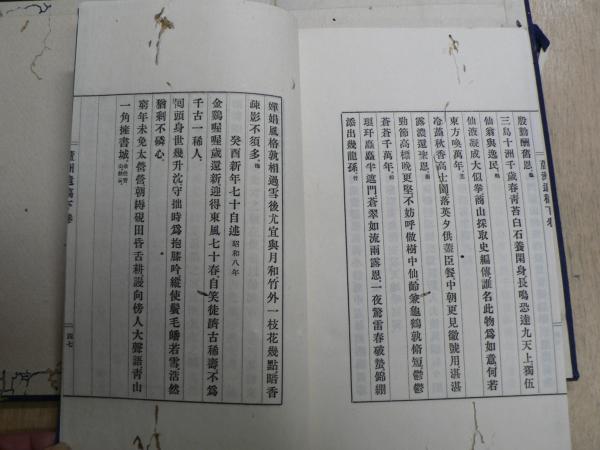 殷勤酬舊恩
三島十洲千歲春青苔白石養閑身長鳴恐達九天上獨伍
仙翁與逸民
仙液凝成大似拳商山採取史編傳誰名此物爲如意何若
東方喚萬年
冷蕋秋香高士園落英夕供蓋臣餐中朝更見徽號用湛湛
露濃還
勁節高標晚更堅不妨呼做樹中仙齡兼龜鶴孰脩短鬱鬱
蒼蒼千萬年
琅玕矗矗半遮門蒼翠如流雨露恩一夜驚雷春破蟄錦綳
添出幾龍孫
嬋娟風格孰相過雪後尤宜與月和竹外一枝花幾點暗香
疎影不須多
癸酉新年七十自述 昭和八年
金鷄喔喔歲還新迎得東風七十春自笑徒躋古稀壽不爲
千古一稀人
回頭身世幾升沈守拙時爲抱膝吟縱使鬢毛皤若雪浩然
猶剩不磷心
窮年未免太營營朝耨硯田昏舌耕謾向傍人大聲語青山
一角擁書城
四七